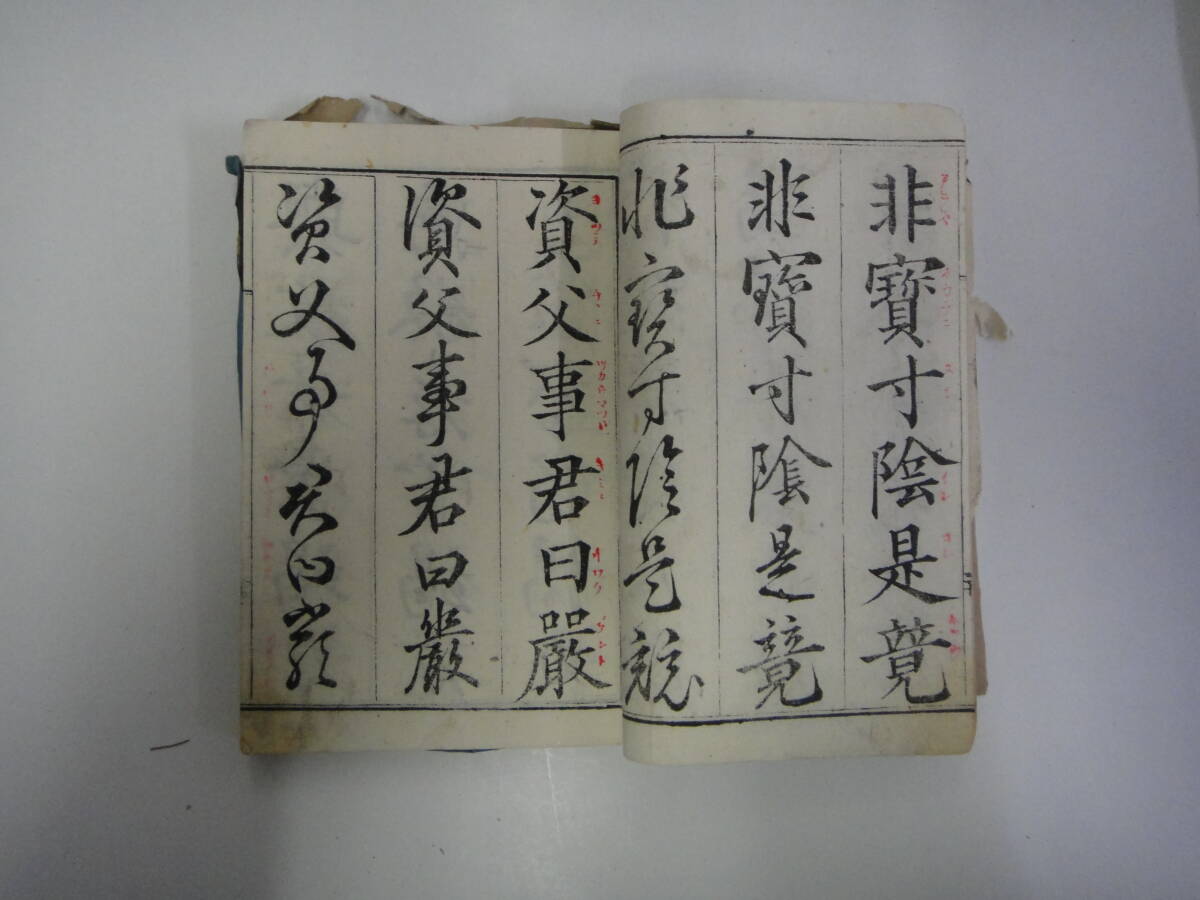 非寶寸陰是競
非寶寸陰是競
非寶寸陰是競
資父事君曰嚴
資父事君曰嚴
資父事君曰嚴